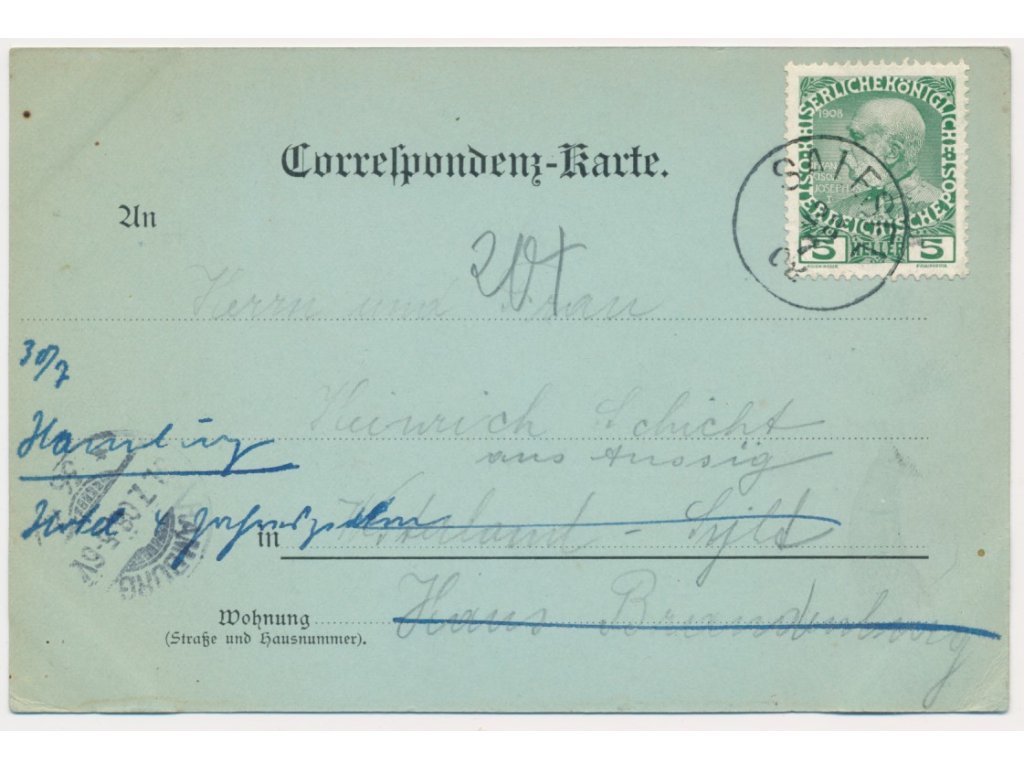 Correspondenz-Karte.
KAISERLICHE KÖNIGLICHE ÖSTERREICHISCHE POST
1908
5 HELLER 5
An
20+
Herrn und Frau
30/7
Heinrich Schicht
aus Aussig
Hamburg
HAMBURG
Hotel 4 Jahreszeiten
in Westerland - Sylt
Wohnung Haus Brandenburg
(Straße und Hausnummer).